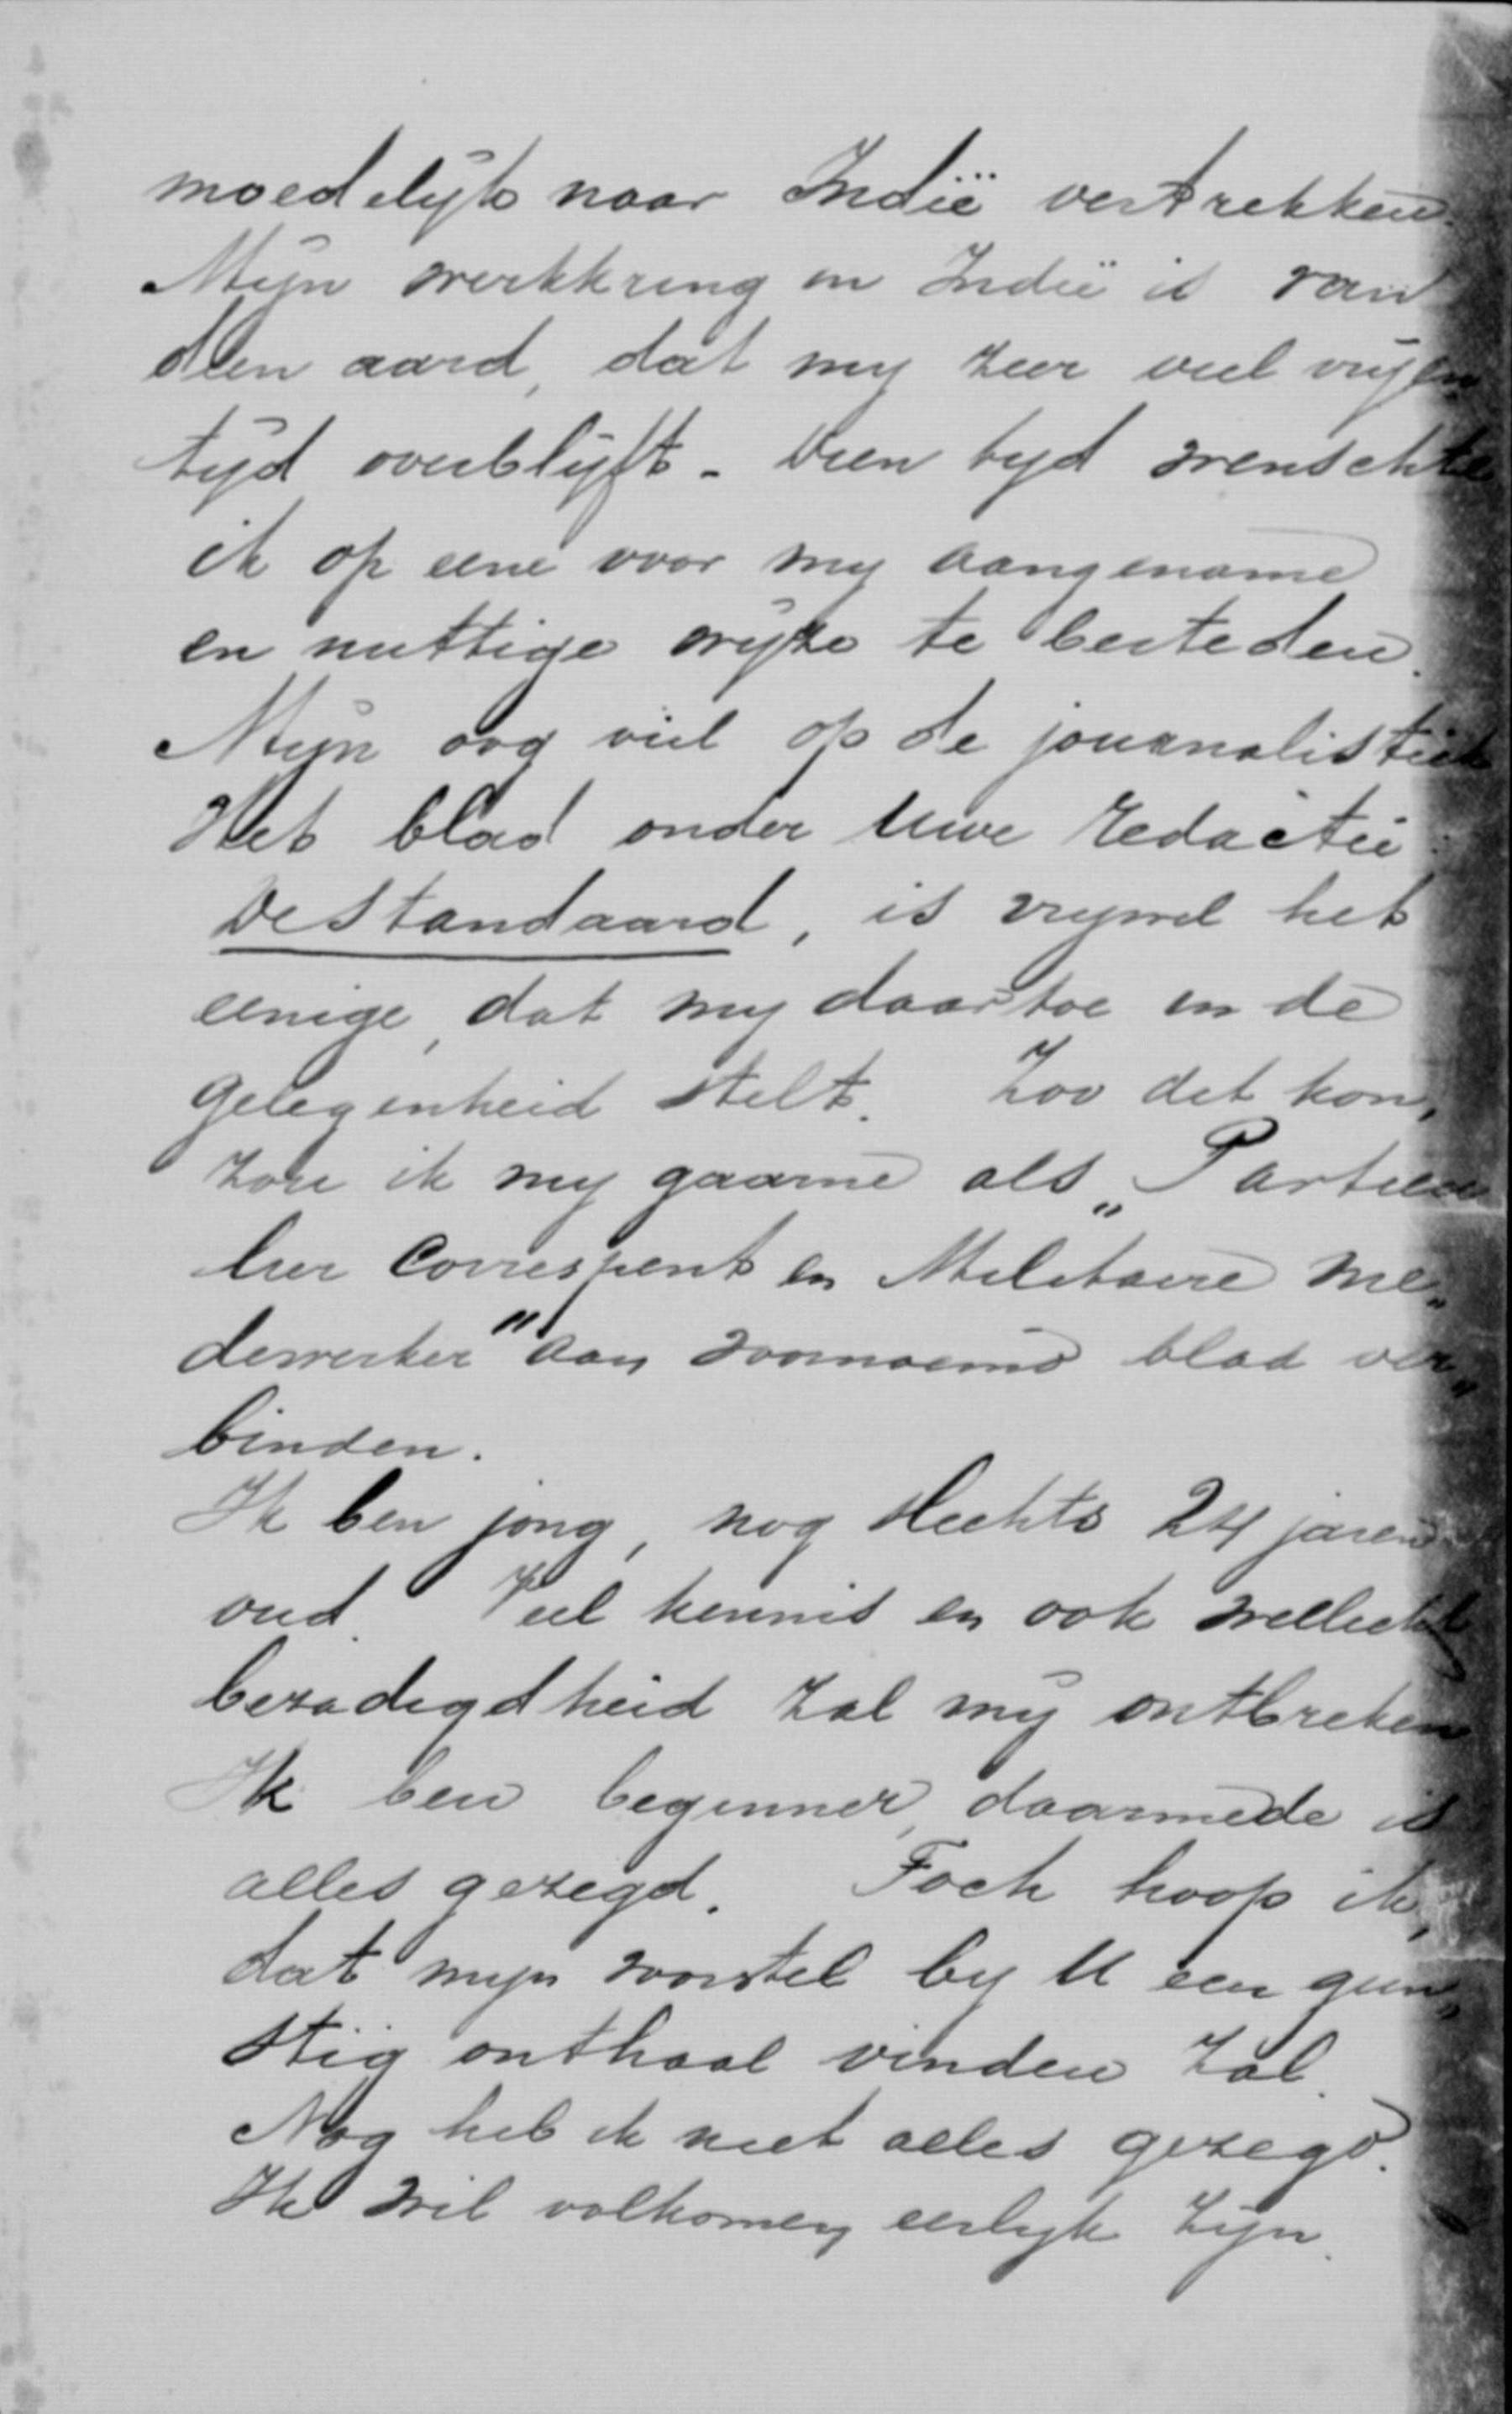 moedelijk naar Indië vertrekken.
Mijn werkkring in Indië is van
dien aard, dat my zeer veel vrijen
tijd overblijft. Dien tyd wenschte
ik op eene voor my aangename
en nuttige wijze te besteden.
Mijn oog viel op de journalistiek
Het blad onder Uwe redactie:
De Standaard, is vrywel het
eenige, dat my daartoe in de
gelegenheid stelt. Zoo det kon,
zou ik my gaarne als „Particu
lier Correspent en Militaire me„
dewerker" aan voornoemd blad ver„
binden.
Ik ben jong, nog slechts 24 jaren
oud. Veel kennis en ook wellicht
bezadigdheid zal mij ontbreken
Ik ben beginner, daarmede is
alles gezegd. Toch hoop ik,
dat myn voorstel by U een gun„
stig onthaal vinden zal.
Nog heb ik niet alles gezegd.
Ik wil volkomen eerlyk zijn.